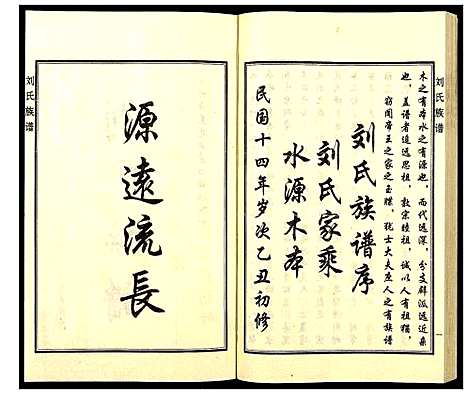 刘氏族谱
源遠流長
民国十四年岁次乙丑初修
水源木本
刘氏家乘
刘氏族谱序
窃闻帝王之家之玉牒，犹士大夫庶人之有族谱
也，盖谱者追远思祖，敦宗睦祖，诚以人有祖犹，
木之有本水之有源也，而代远深，分支辟派远近亲
刘氏族谱
一